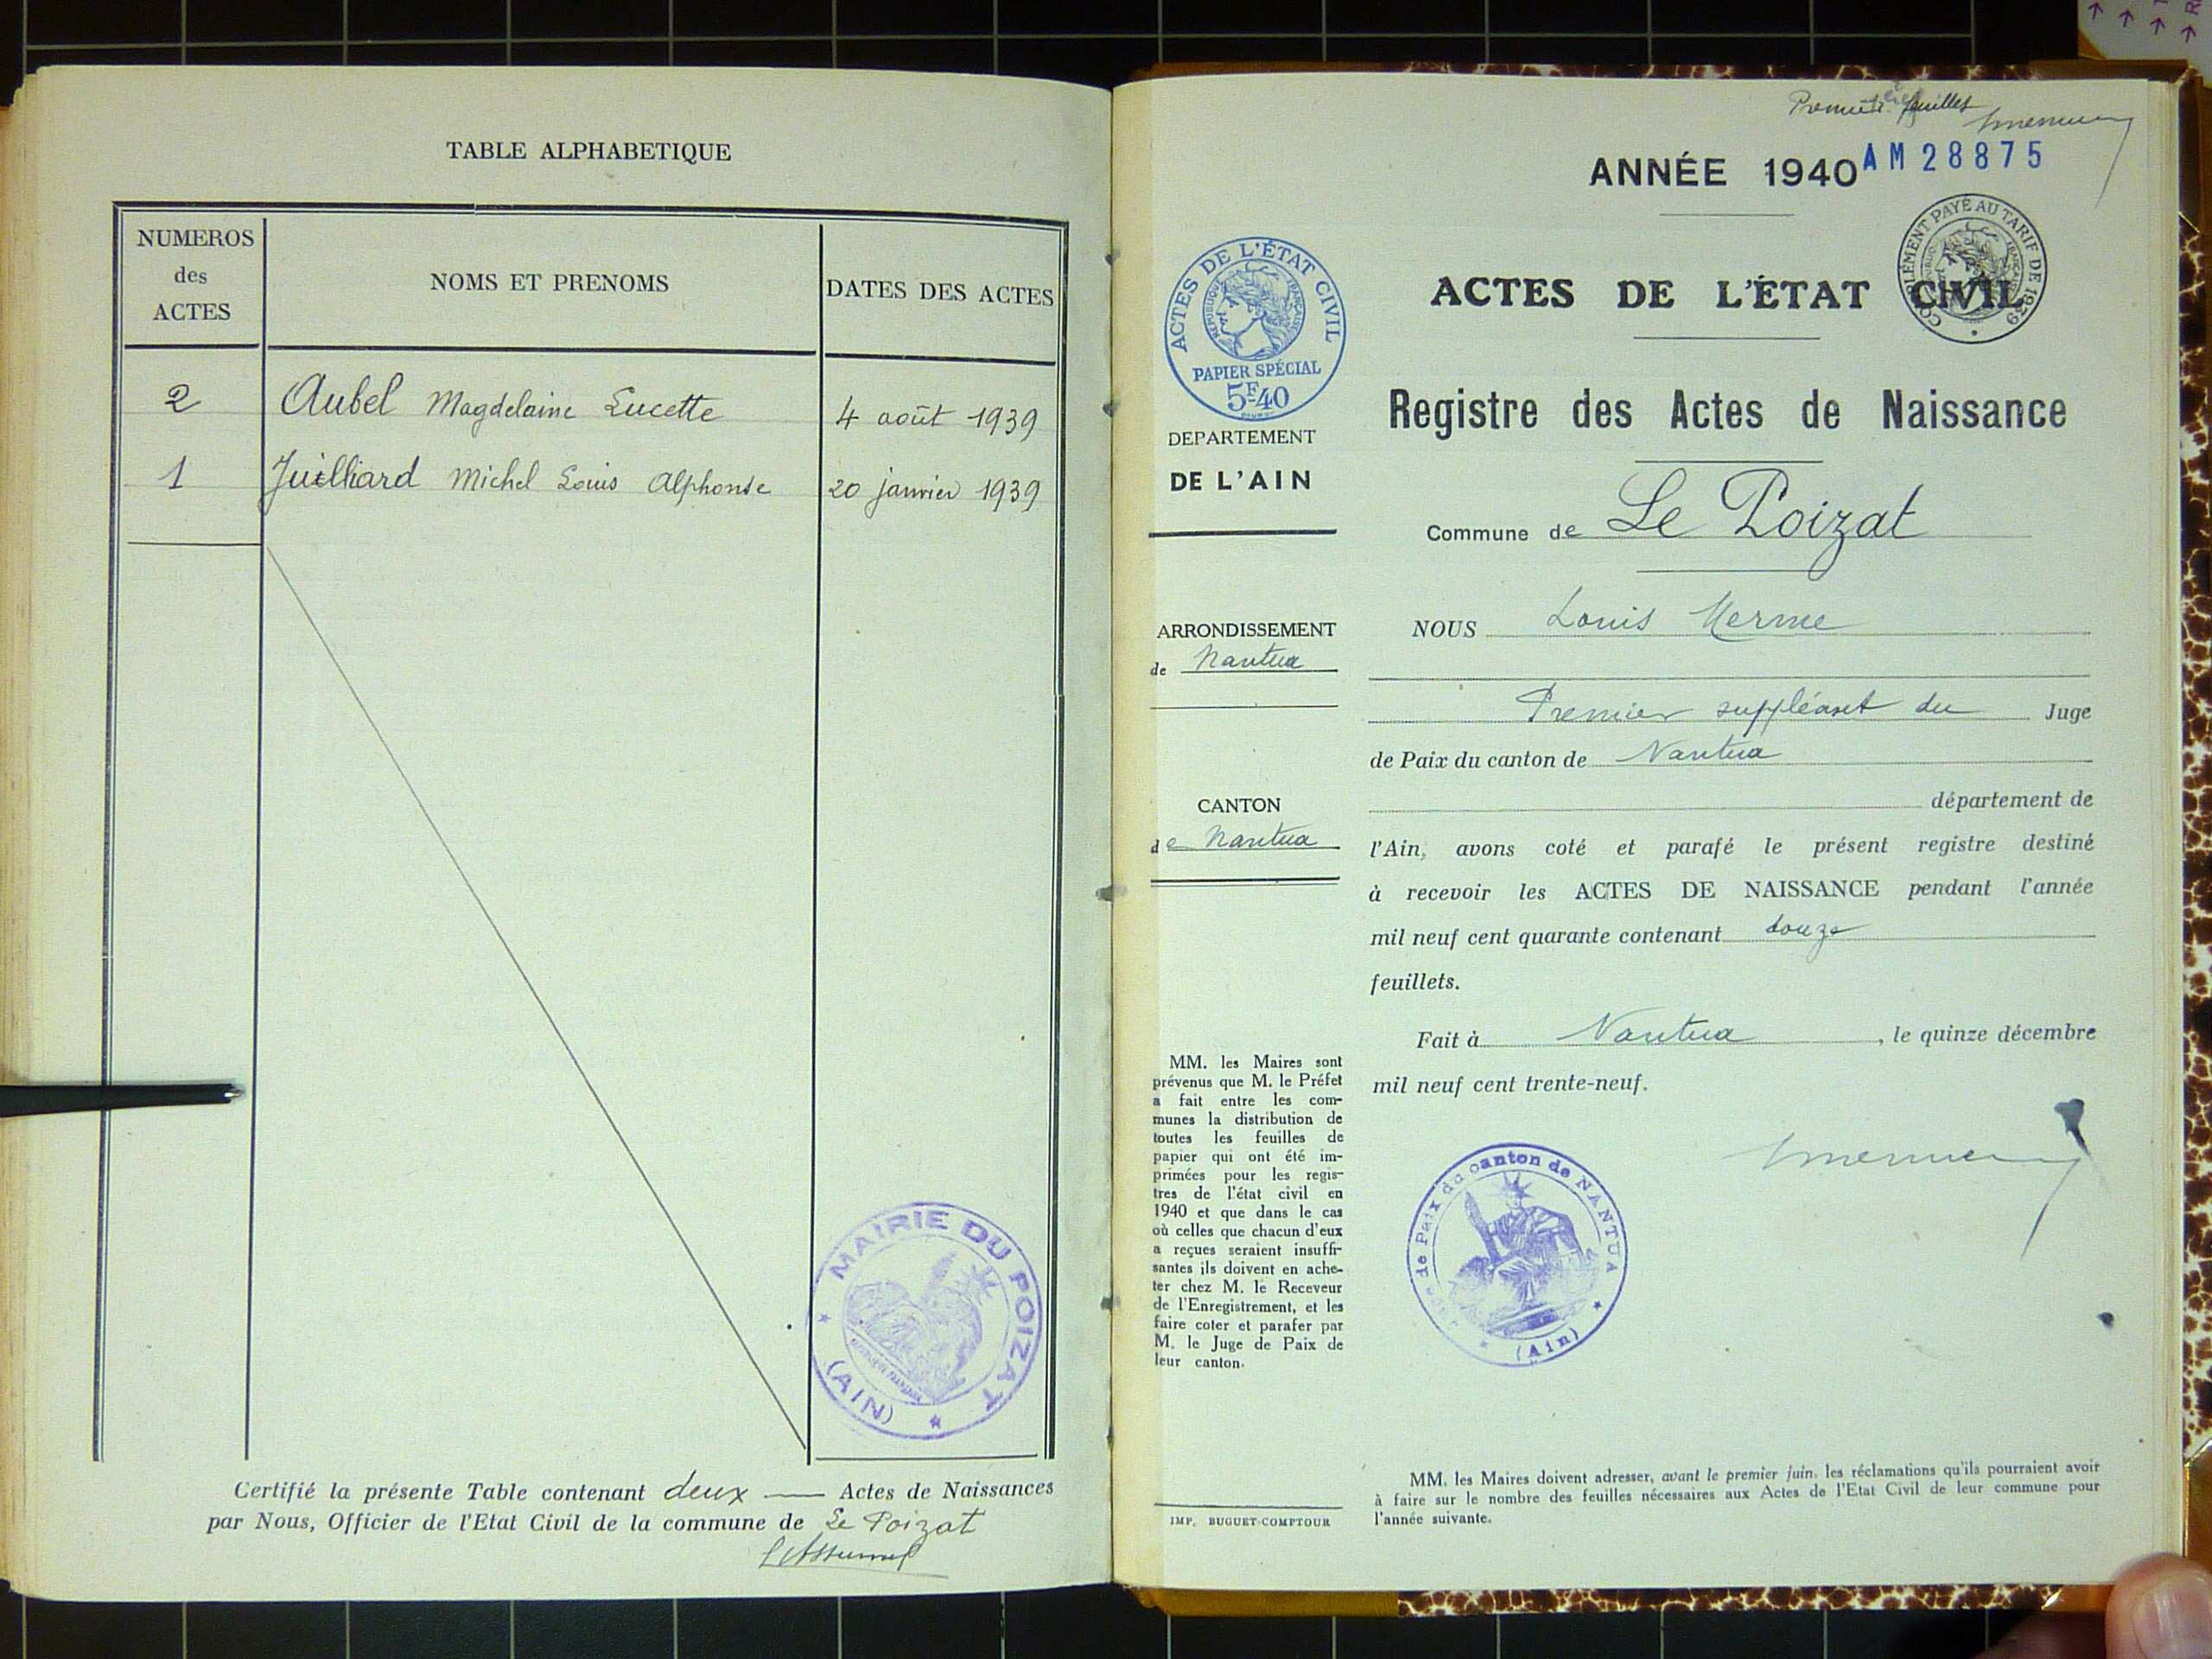 TABLE ALPHABETIQUE
NUMEROS
des
ACTES
NOMS ET PRENOMS
DATES DES ACTES
2 Aubel Magdelaine Lucette 4 août 1939
1 Juilliard Michel Louis Alphonse 20 janvier 1939
MAIRIE DU POIZAT
(AIN)
Certifié la présente Table contenant deux Actes de Naissances
par Nous, Officier de l'Etat Civil de la commune de Le Poizat
ANNÉE 1940
AM 28875
COMPLÉMENT PAYÉ AU TARIF DE 1939
ACTES DE L'ÉTAT CIVIL
RÉPUBLIQUE FRANÇAISE
PAPIER SPÉCIAL
5F40
DEPARTEMENT
DE L'AIN
ARRONDISSEMENT
de Nantua
CANTON
de Nantua
MM. les Maires sont
prévenus que M. le Préfet
a fait entre les com-
munes la distribution de
toutes les feuilles de
papier qui ont été im-
primées pour les regis-
tres de l'état civil en
1940 et que dans le cas
où celles que chacun d'eux
a reçues seraient insuffi-
santes ils doivent en ache-
ter chez M. le Receveur
de l'Enregistrement, et les
faire coter et parafer par
M. le Juge de Paix de
leur canton.
IMP. BUGUET-COMPTOUR
ACTES DE L'ÉTAT CIVIL
Registre des Actes de Naissance
Commune de Le Poizat
NOUS Louis Merme
Premier suppléant du Juge
de Paix du canton de Nantua
département de
l'Ain, avons coté et parafé le présent registre destiné
à recevoir les ACTES DE NAISSANCE pendant l'année
mil neuf cent quarante contenant douze
feuillets.
Fait à Nantua, le quinze décembre
mil neuf cent trente-neuf.
de Paix du canton de NANTUA
(Ain)
MM. les Maires doivent adresser, avant le premier juin, les réclamations qu'ils pourraient avoir
à faire sur le nombre des feuilles nécessaires aux Actes de l'Etat Civil de leur commune pour
l'année suivante.